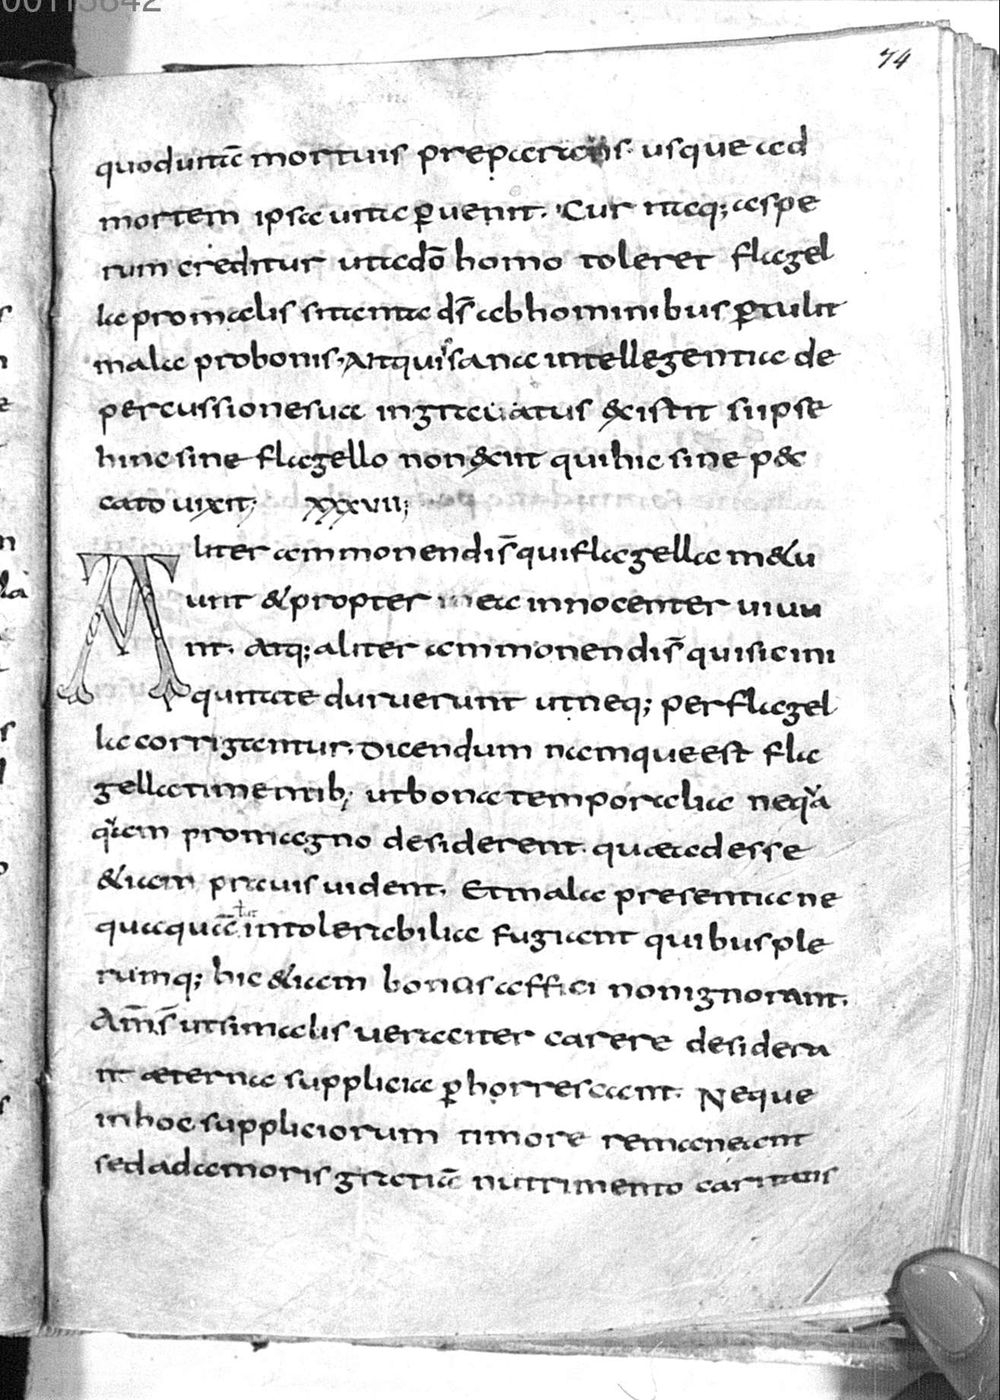 00113642
74
quod uitã mortuis preparans. usque ad
mortem ipsa uita ꝑuenit. Cur itaq; aspe
rum creditur ut a dõ homo toleret flagel
la pro malis si tanta ds̄ ab hominibus ꝑtulit
mala pro bonis. Aut quis sana intellegentia de
percussione sua ingratus &istit si ipse
hinc sine flagello non &iit qui hic sine pec
cato uixit; xxxvii;
Aliter ammonendi s̄ qui flagella m&u
unt & propter ea innocenter uiuu
nt. Atq; aliter ammonendi s̄ qui sic in i
quitate duruerunt ut neq; per flagel
la corrigantur. Dicendum namque est fla
gella timentib; ut bona temporalia neqa
quam pro magno desiderent. quæ adesse
&iam prauis uident. Et mala presentia ne
quaquã ut intolerabilia fugiant quibus ple
rumq; hic &iam bonos affici non ignorant.
Ammn̄ s̄ ut si malis ueraciter carere desidera
nt æterna supplicia ꝑhorrescant. Neque
in hoc suppliciorum timore remaneant
sed ad amoris gratiã nutrimento caritatis